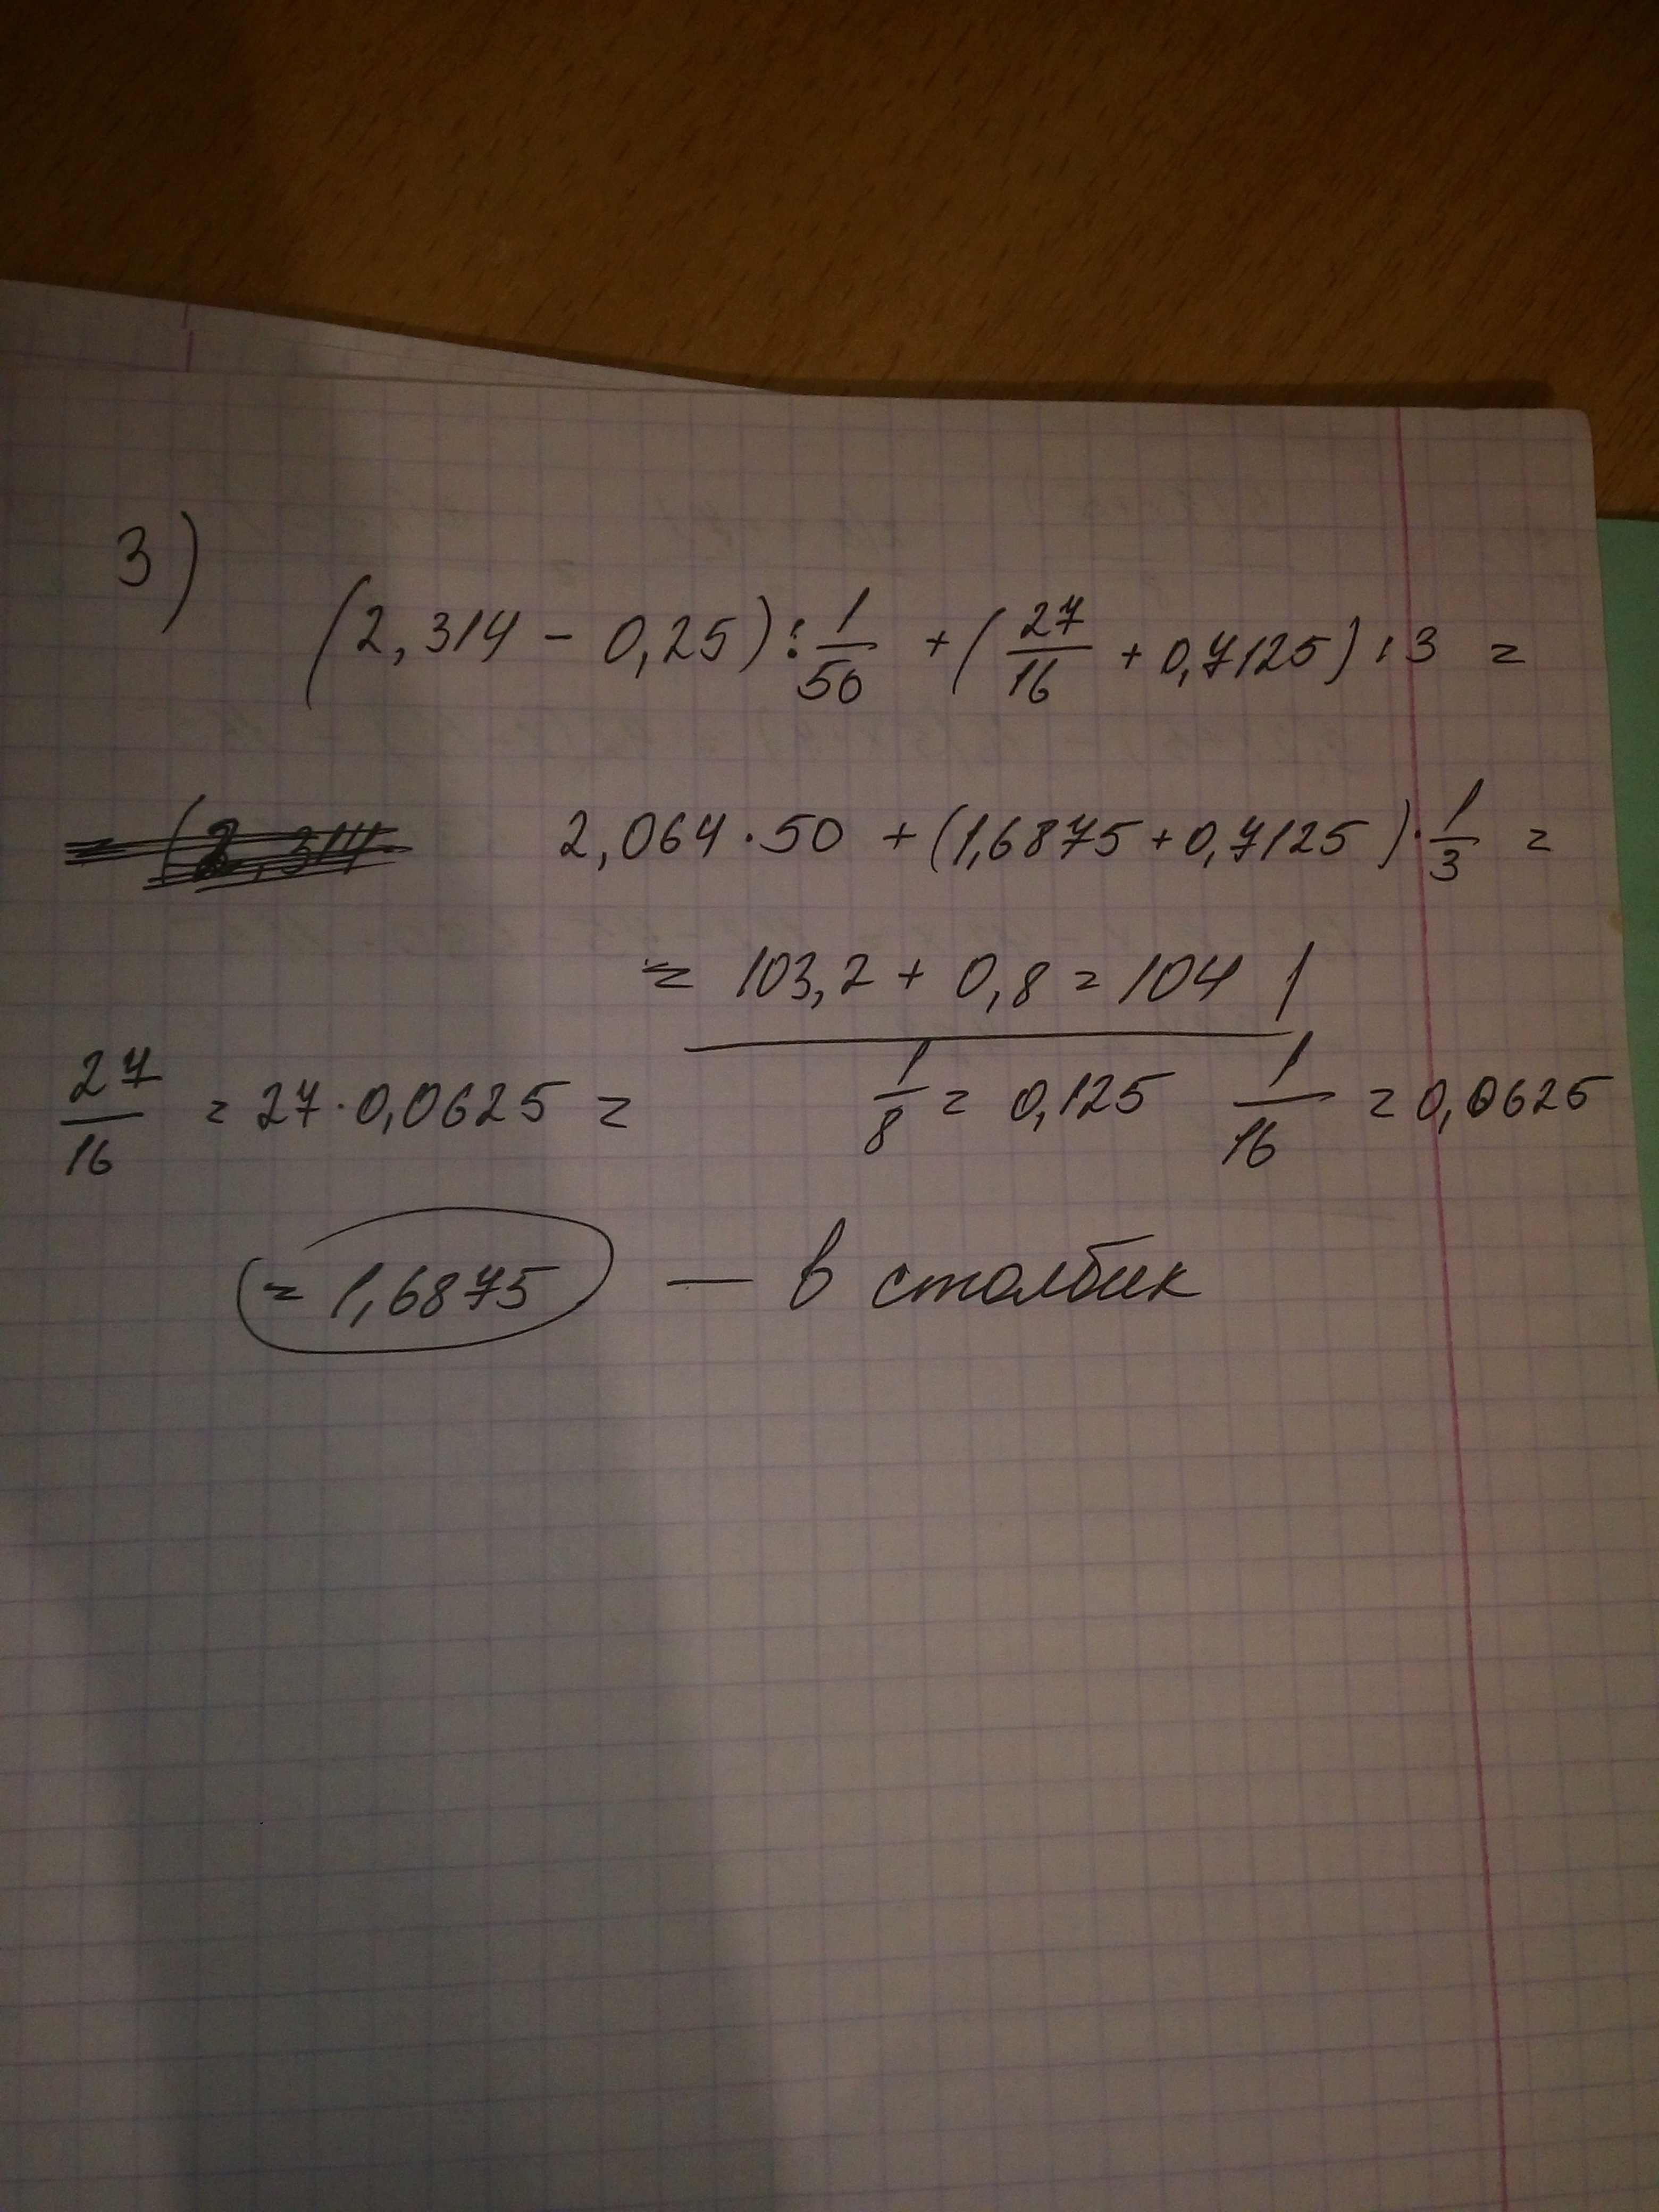 3)
(2,314 - 0,25) : 1/50 + (27/16 + 0,7125) : 3 =
= (2,314
2,064 · 50 + (1,6875 + 0,7125) · 1/3 =
= 103,2 + 0,8 = 104
27/16 = 27 · 0,0625 =
1/8 = 0,125 1/16 = 0,0625
= 1,6875 — в столбик